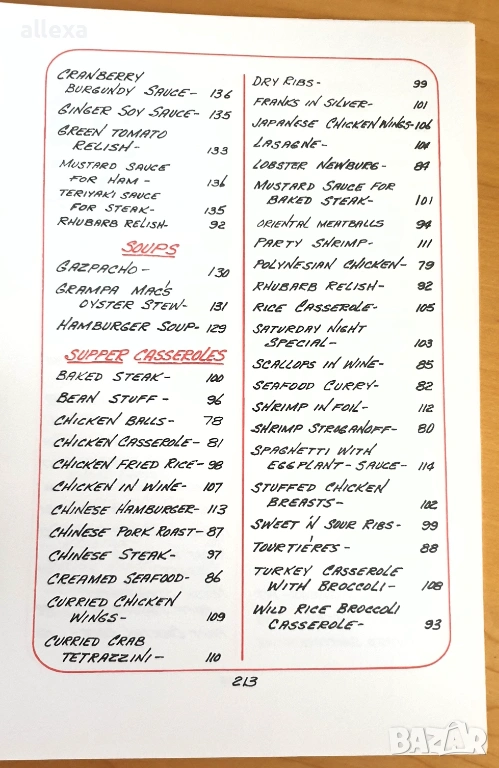 allexa
CRANBERRY
BURGUNDY SAUCE- 136
GINGER SOY SAUCE- 135
GREEN TOMATO
RELISH- 133
MUSTARD SAUCE
FOR HAM- 136
TERIYAKI SAUCE
FOR STEAK- 135
RHUBARB RELISH- 92
SOUPS
GAZPACHO- 130
GRAMPA MAC'S
OYSTER STEW- 131
HAMBURGER SOUP- 129
SUPPER CASSEROLES
BAKED STEAK- 100
BEAN STUFF- 96
CHICKEN BALLS- 78
CHICKEN CASSEROLE- 81
CHICKEN FRIED RICE- 98
CHICKEN IN WINE- 107
CHINESE HAMBURGER- 113
CHINESE PORK ROAST- 87
CHINESE STEAK- 97
CREAMED SEAFOOD- 86
CURRIED CHICKEN
WINGS- 109
CURRIED CRAB
TETRAZZINI- 110
DRY RIBS- 99
FRANKS IN SILVER- 101
JAPANESE CHICKEN WINGS- 106
LASAGNE- 104
LOBSTER NEWBURG- 84
MUSTARD SAUCE FOR
BAKED STEAK- 101
ORIENTAL MEATBALLS 94
PARTY SHRIMP- 111
POLYNESIAN CHICKEN- 79
RHUBARB RELISH- 92
RICE CASSEROLE- 105
SATURDAY NIGHT
SPECIAL- 103
SCALLOPS IN WINE- 85
SEAFOOD CURRY- 82
SHRIMP IN FOIL- 112
SHRIMP STROGANOFF- 80
SPAGHETTI WITH
EGGPLANT-SAUCE- 114
STUFFED CHICKEN
BREASTS- 102
SWEET 'N SOUR RIBS- 99
TOURTIÈRES- 88
TURKEY CASSEROLE
WITH BROCCOLI- 108
WILD RICE BROCCOLI
CASSEROLE- 93
213
BAZAR.bg